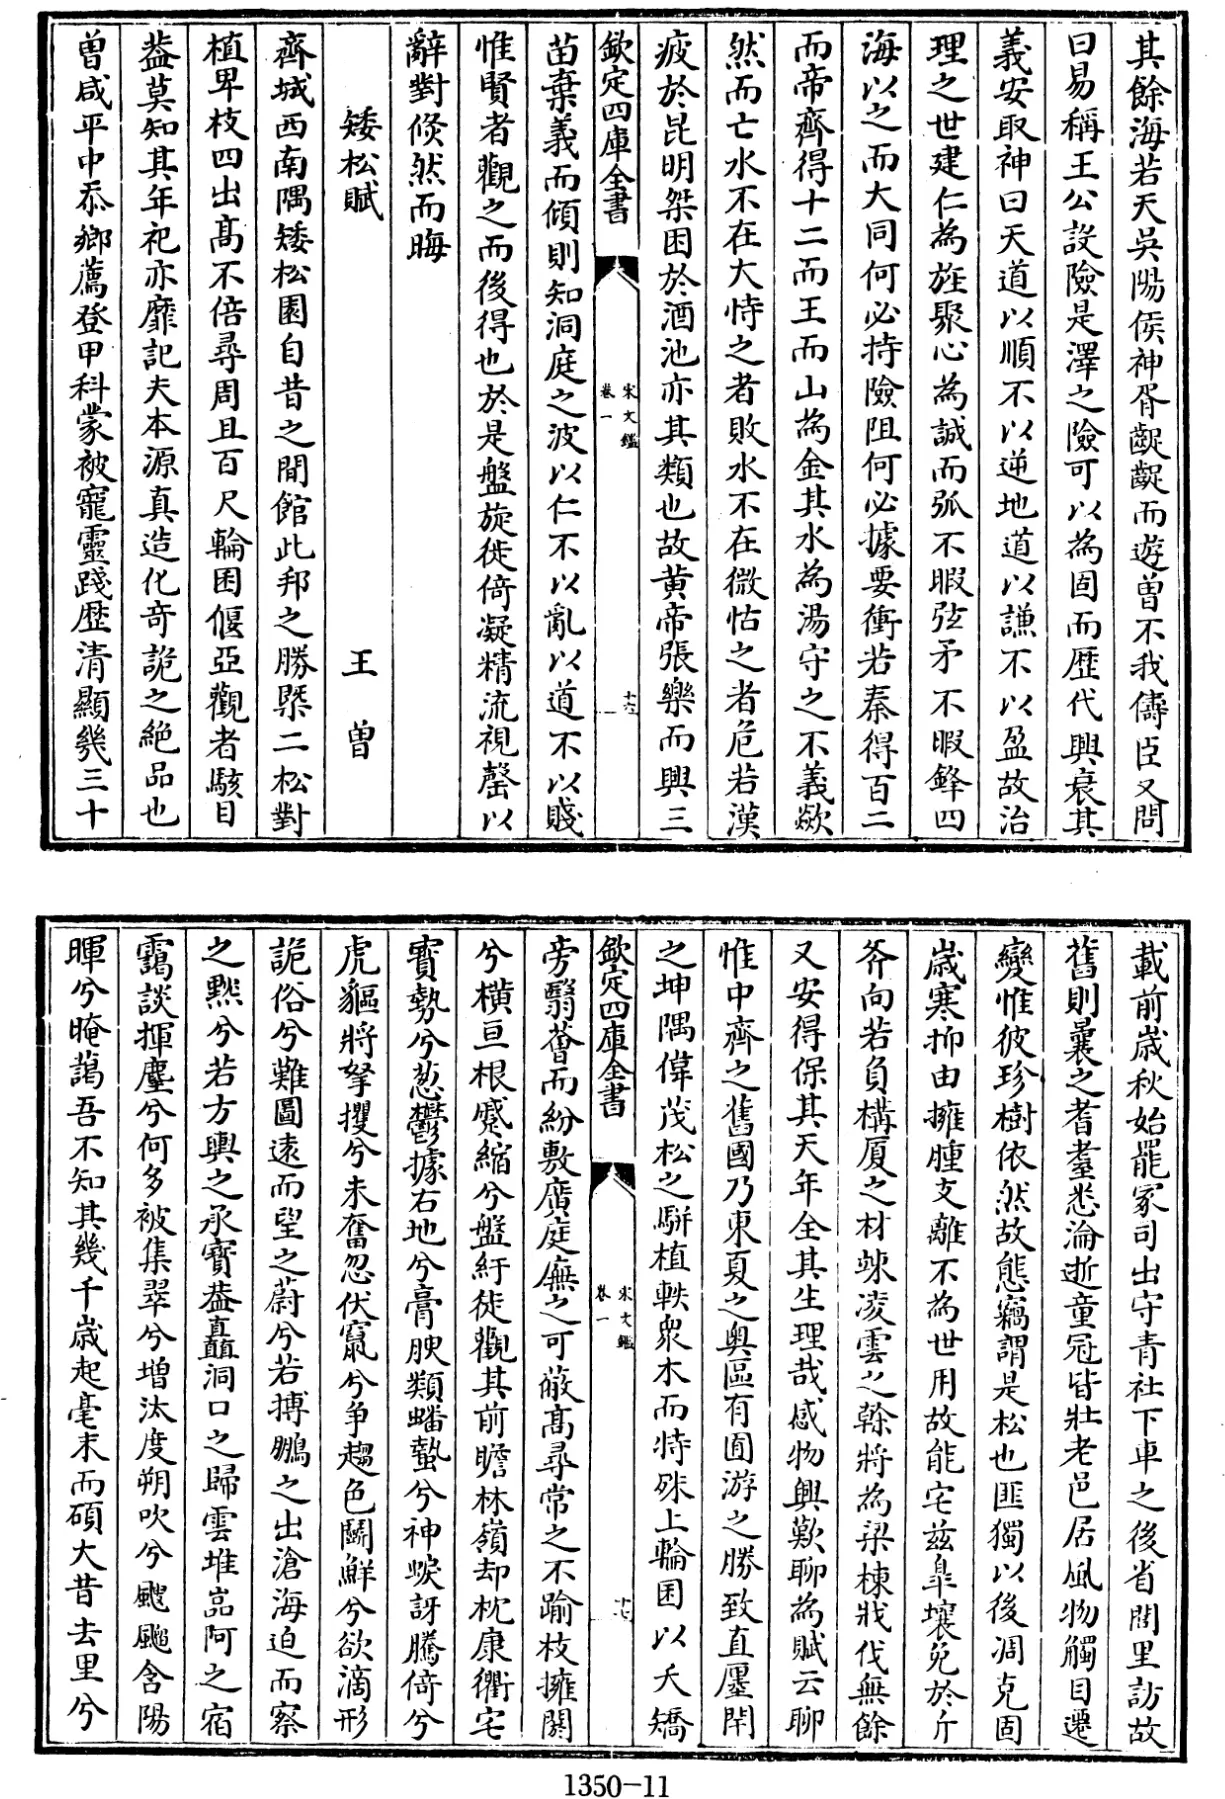 其餘海若天吳陽侯神胥齯齯而遊曾不我儔臣又問
曰易稱王公設險是澤之險可以為固而歴代興衰其
義安取神曰天道以順不以逆地道以謙不以盈故治
理之世建仁為旌聚心為誠而弧不暇弦矛不暇鋒四
海以之而大同何必恃險阻何必據要衝若秦得百二
而帝齊得十二而王而山為金其水為湯守之不義歘
然而亡水不在大恃之者敗水不在微怙之者危若漢
疲於昆明桀困於酒池亦其類也故黄帝張樂而興三
欽定四庫全書
宋文鑑
卷一
十六
苗棄義而傾則知洞庭之波以仁不以亂以道不以賤
惟賢者觀之而後得也於是盤旋徙倚凝精流視罄以
辭對倐然而晦
矮松賦 王曾
齊城西南隅矮松園自昔之閒館此邦之勝槩二松對
植卑枝四出髙不倍尋周且百尺輪囷偃亞觀者駭目
葢莫知其年祀亦靡記夫本源真造化奇詭之絶品也
曾咸平中忝鄉薦登甲科蒙被寵靈踐歴清顯幾三十
載前歳秋始罷冢司出守青社下車之後省閭里訪故
舊則曩之耆耋悉淪逝童冠皆壯老邑居風物觸目遷
變惟彼珍樹依然故態竊謂是松也匪獨以後凋克固
歳寒抑由擁腫支離不為世用故能宅兹皐壤免於斤
斧向若負構厦之材竦凌雲之榦將為梁棟戕伐無餘
又安得保其天年全其生理哉感物興歎聊為賦云聊
惟中齊之舊國乃東夏之奥區有囿游之勝致直廛閈
之坤隅偉茂松之駢植軼衆木而特殊上輪囷以夭矯
欽定四庫全書
宋文鑑
卷一
十七
旁翳薈而紛敷廣庭廡之可蔽髙尋常之不踰枝擁閼
兮横亘根蹙縮兮盤紆徒觀其前瞻林嶺却枕康衢宅
寳勢兮葱鬱據右地兮膏腴類蟠蟄兮神蜧訝騰倚兮
虎貙將拏攫兮未奮忽伏竄兮争趨色鬭鮮兮欲滴形
詭俗兮難圖遠而望之蔚兮若摶鵬之出滄海迫而察
之黙兮若方輿之承寳葢矗洞口之歸雲堆嵓阿之宿
靄談揮麈兮何多被集翠兮增汰度朔吹兮飕飗含陽
暉兮晻藹吾不知其幾千歳起毫末而碩大昔去里兮
1350-11